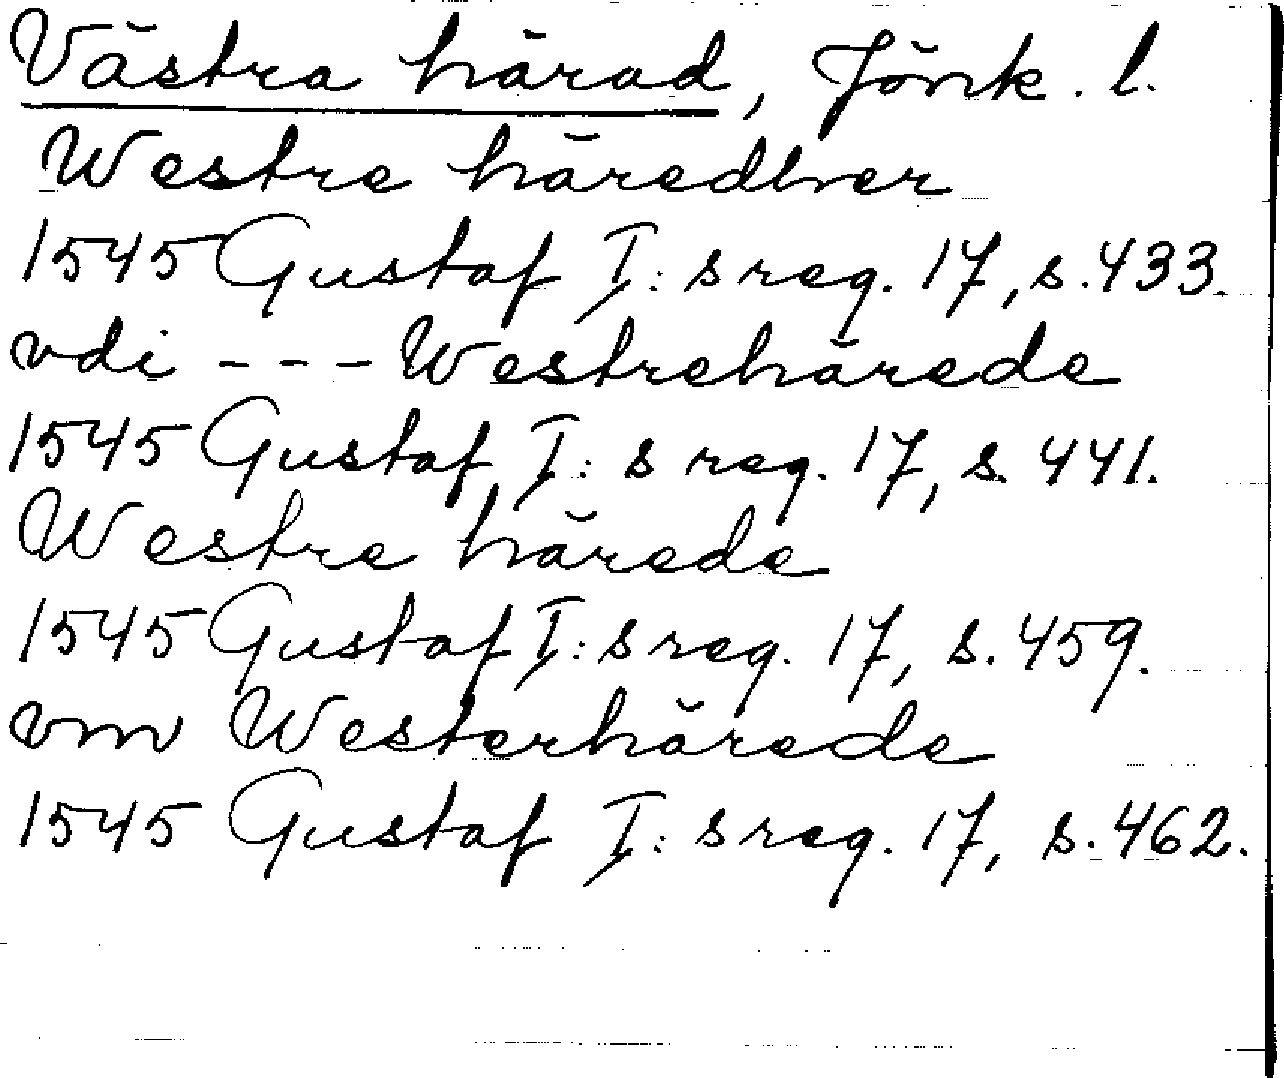 Västra härad, Jönk. l.
Westre häredher
1545 Gustaf I:s reg. 17, s. 433.
vdi --- Westrehärede
1545 Gustaf I:s reg. 17, s. 441.
Westre härede
1545 Gustaf I:s reg. 17, s. 459.
vm Westerhärede
1545 Gustaf I:s reg. 17, s. 462.